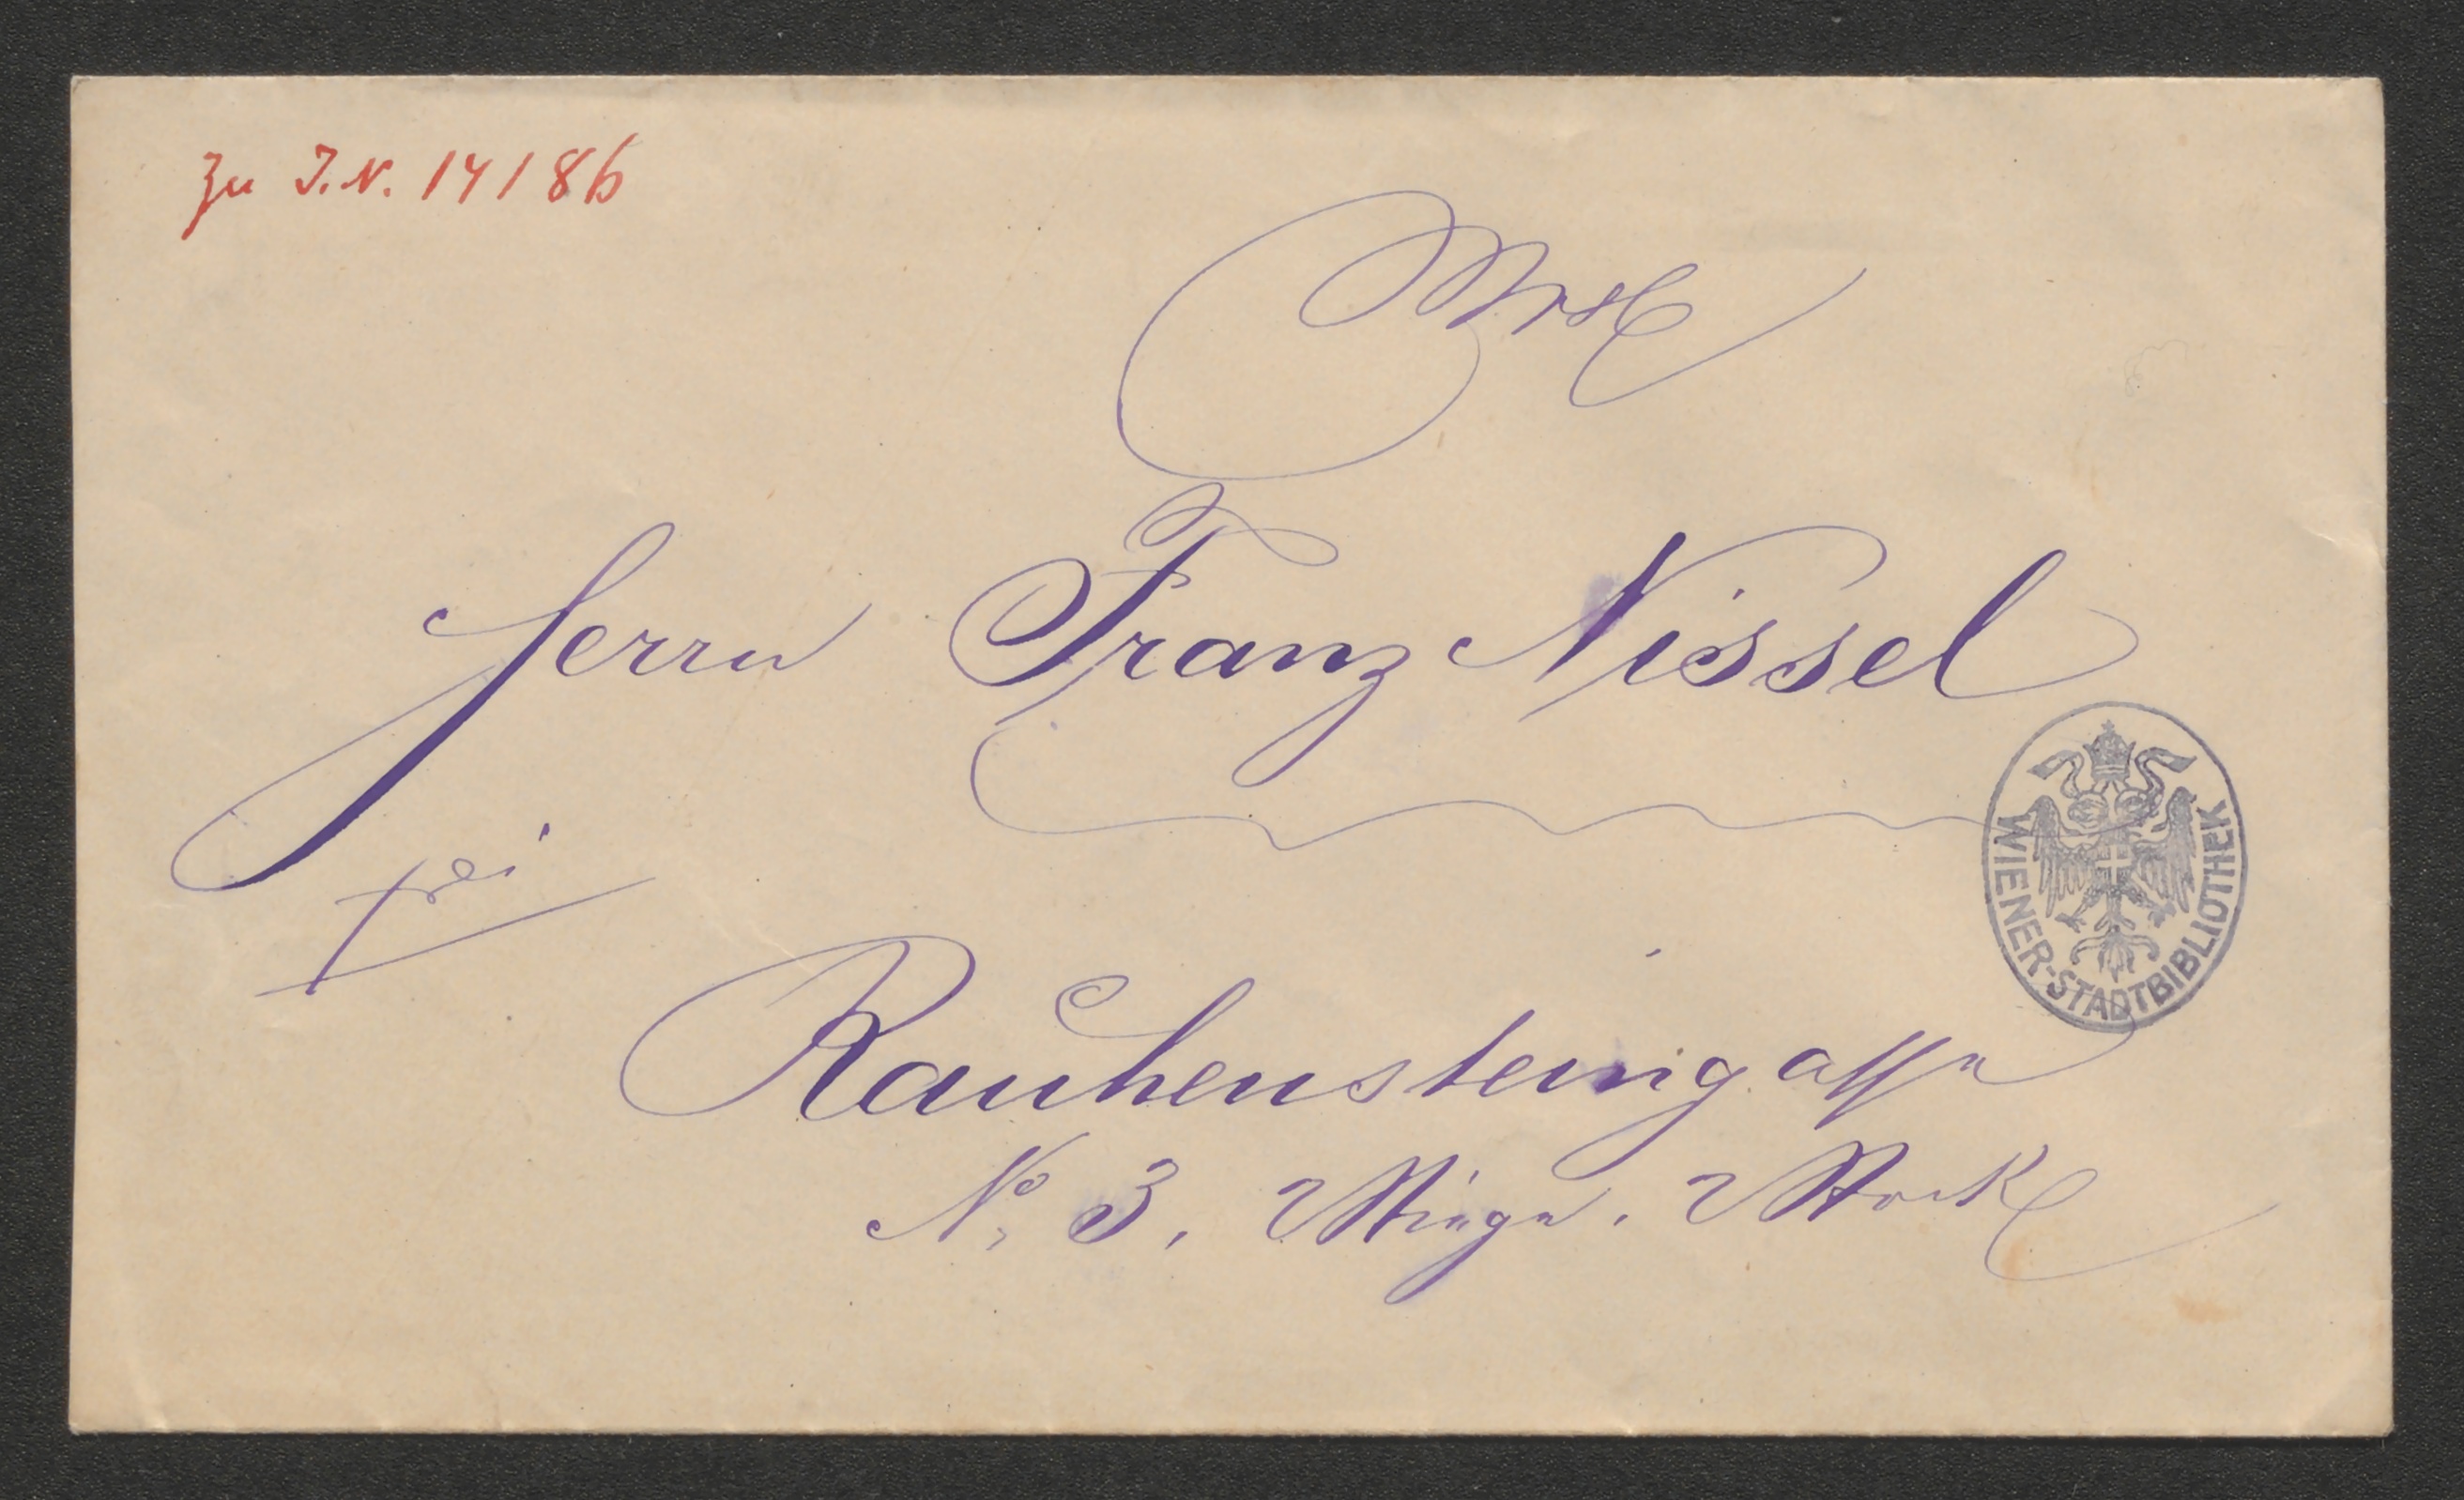 zu I.N. 14186
Herrn Franz Nissel
frei
Rauhensteingasse
No 3, Stiege, Stock
WIENER-STADTBIBLIOTHEK